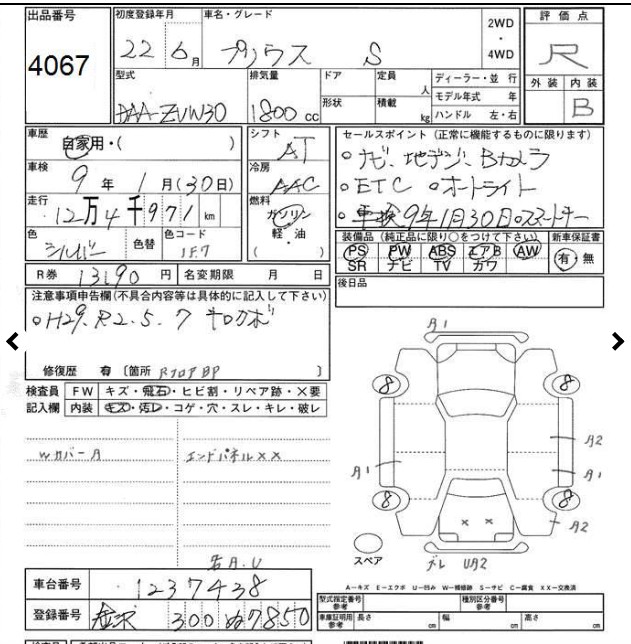 出品番号
4067
初度登録年月
22 6月
車名・グレード
プリウス S
2WD
・
4WD
評価点
R
外装 内装
B
型式
DAA-ZVW30
排気量
1800cc
ドア
形状
定員
人
積載
kg
ディーラー・並 行
モデル年式 年
ハンドル 左・右
車歴
自家用・( )
車検
9年 1月(30日)
走行
12万4千971km
色
シルバー
色替
色コード
1F7
シフト
AT
冷房
AAC
燃料
ガソリン
軽・油
( )
セールスポイント (正常に機能するものに限ります)
○ナビ、地デジ、Bカメラ
○ETC ○オートライト
○車検9年1月30日○スマートキー
装備品 (純正品に限り○をつけて下さい)
PS PW ABS エアB AW
SR ナビ TV カワ
新車保証書
有・無
R券 13190円
名変期限 月 日
後日品
注意事項申告欄(不具合内容等は具体的に記入して下さい)
○H29.R2.5.7 キロカボ
修復歴 有 〔箇所 RフロアBP 〕
検査員
記入欄
FW キズ・飛石・ヒビ割・リペア跡・×要
内装 キズ・汚レ・コゲ・穴・スレ・キレ・破レ
Wカバー A
エンドパネル××
若A.U
A1
8
8
A2
A1
A1
8
8
A2
× ×
スペア
デレ UA2
A－キズ E－エクボ U－凹み W－補修跡 S－サビ C－腐食 XX－交換済
車台番号
1237438
登録番号
金沢 300 ぬ7850
型式指定番号
参考
種別区分番号
参考
車庫証明用
参考
長さ cm
幅 cm
高さ cm